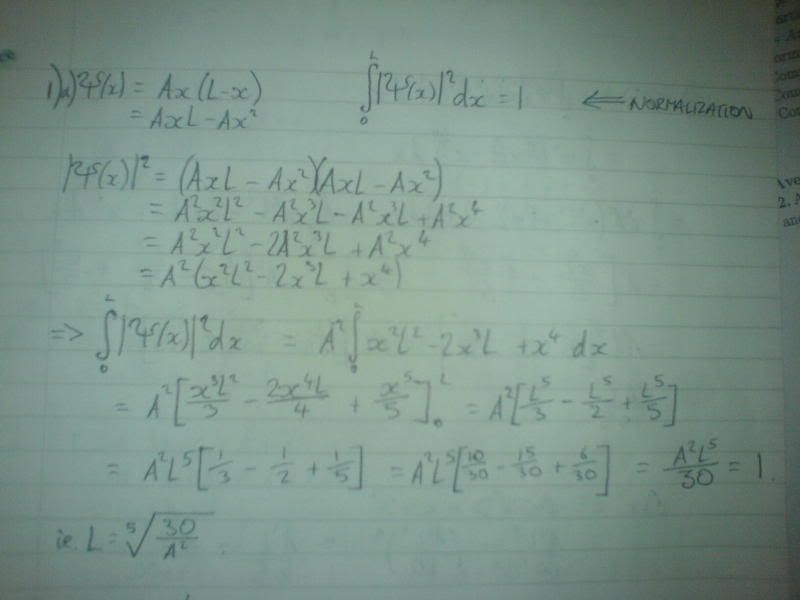 1)a) Ψ(x) = Ax(L-x) ∫₀ᴸ |Ψ(x)|² dx = 1 ⇐ NORMALIZATION
= AxL - Ax²
|Ψ(x)|² = (AxL - Ax²)(AxL - Ax²)
= A²x²L² - A²x³L - A²x³L + A²x⁴
= A²x²L² - 2A²x³L + A²x⁴
= A²(x²L² - 2x³L + x⁴)
=> ∫₀ᴸ |Ψ(x)|² dx = A² ∫₀ᴸ x²L² - 2x³L + x⁴ dx
= A² [x³L²/3 - 2x⁴L/4 + x⁵/5]₀ᴸ = A² [L⁵/3 - L⁵/2 + L⁵/5]
= A²L⁵ [1/3 - 1/2 + 1/5] = A²L⁵ [10/30 - 15/30 + 6/30] = A²L⁵/30 = 1.
ie. L = ⁵√(30/A²).